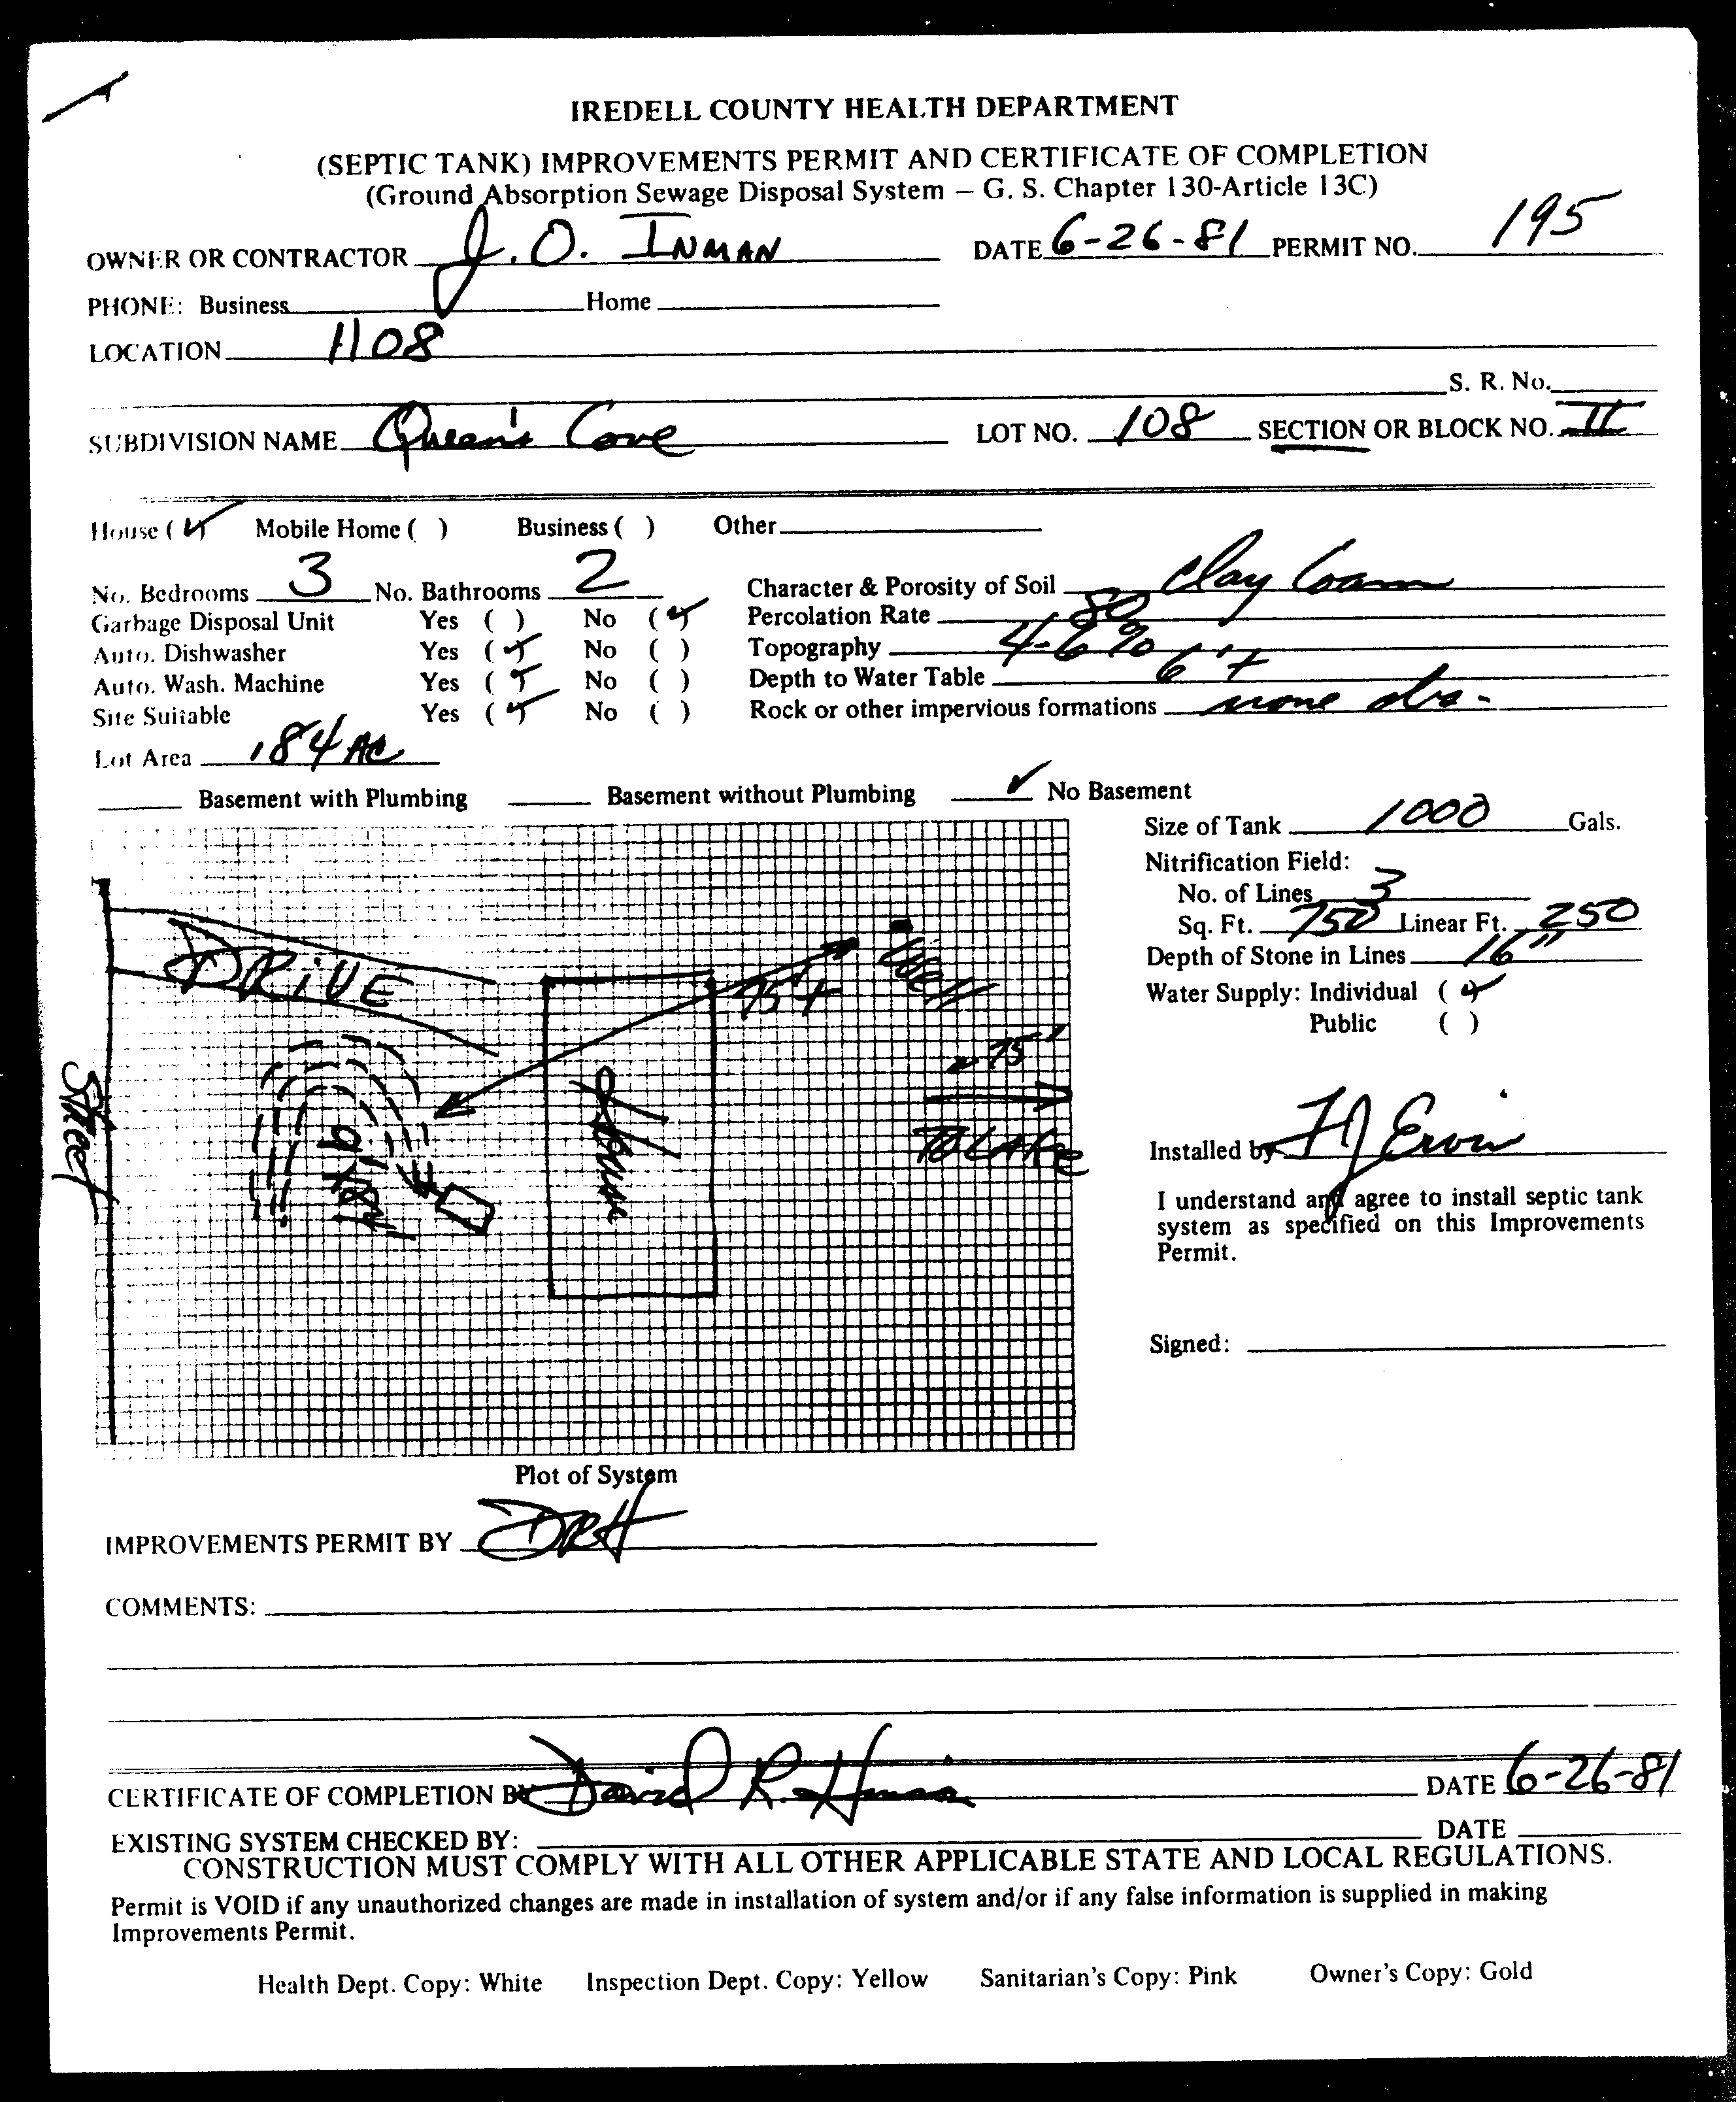 IREDELL COUNTY HEALTH DEPARTMENT
(SEPTIC TANK) IMPROVEMENTS PERMIT AND CERTIFICATE OF COMPLETION
(Ground Absorption Sewage Disposal System – G. S. Chapter 130-Article 13C)
OWNER OR CONTRACTOR J. O. INMAN DATE 6-26-81 PERMIT NO. 195
PHONE: Business Home
LOCATION 1108
S. R. No.
SUBDIVISION NAME Queen's Cove LOT NO. 108 SECTION OR BLOCK NO. II
House (✓) Mobile Home ( ) Business ( ) Other
No. Bedrooms 3 No. Bathrooms 2 Character & Porosity of Soil Clay Loam
Garbage Disposal Unit Yes ( ) No (✓) Percolation Rate 80
Auto. Dishwasher Yes (✓) No ( ) Topography 4-6%
Auto. Wash. Machine Yes (✓) No ( ) Depth to Water Table 6'+
Site Suitable Yes (✓) No ( ) Rock or other impervious formations none obs.
Lot Area .84 AC
Basement with Plumbing Basement without Plumbing ✓ No Basement
Size of Tank 1000 Gals.
Nitrification Field:
No. of Lines 3
Sq. Ft. 750 Linear Ft. 250
Depth of Stone in Lines 16"
Water Supply: Individual (✓)
Public ( )
DRIVE
75'+
Well
75'
To LAKE
Street
House
Installed by F J Ervin
I understand and agree to install septic tank
system as specified on this Improvements
Permit.
Signed:
Plot of System
IMPROVEMENTS PERMIT BY DRH
COMMENTS:
CERTIFICATE OF COMPLETION BY David R. DATE 6-26-81
EXISTING SYSTEM CHECKED BY: DATE
CONSTRUCTION MUST COMPLY WITH ALL OTHER APPLICABLE STATE AND LOCAL REGULATIONS.
Permit is VOID if any unauthorized changes are made in installation of system and/or if any false information is supplied in making
Improvements Permit.
Health Dept. Copy: White Inspection Dept. Copy: Yellow Sanitarian's Copy: Pink Owner's Copy: Gold